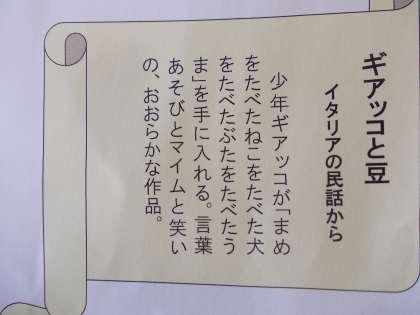 ギアッコと豆
イタリアの民話から
少年ギアッコが「まめ
をたべたねこをたべた犬
をたべたぶたをたべたう
ま」を手に入れる。言葉
あそびとマイムと笑い
の、おおらかな作品。